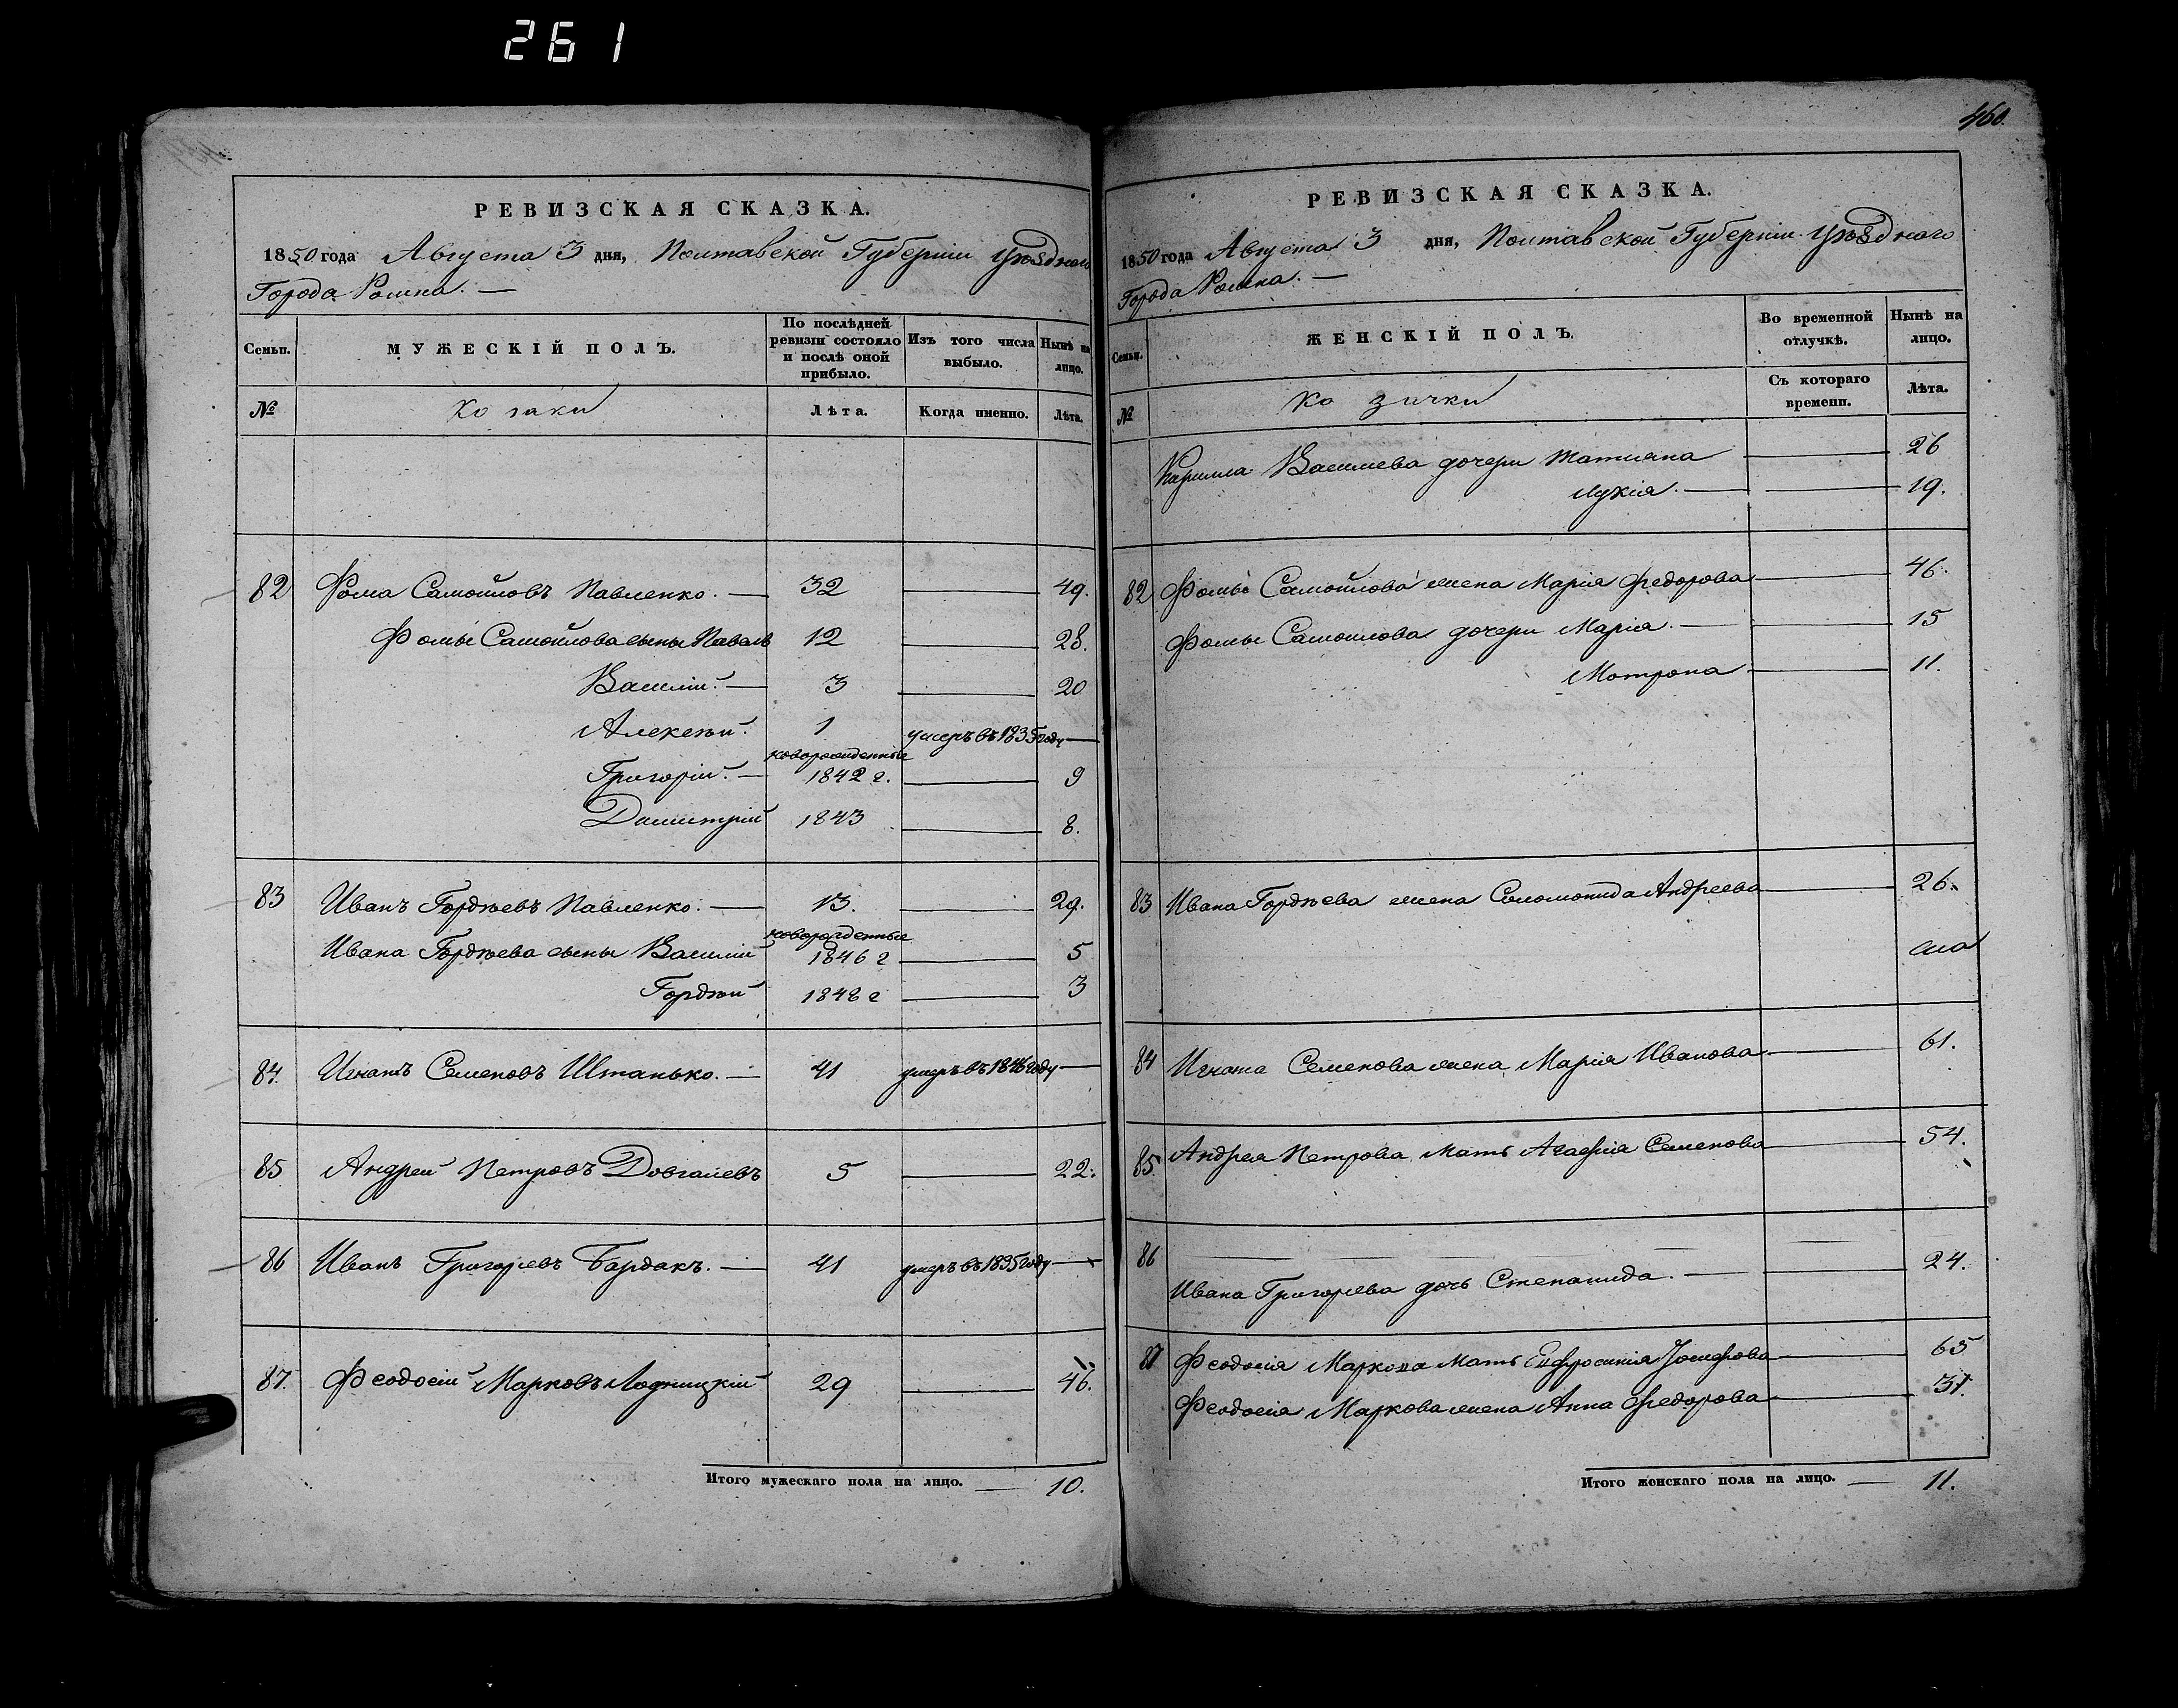 261
460.
РЕВИЗСКАЯ СКАЗКА.
1850 года Августа 3 дня, Полтавской Губерніи Уѣзднаго
Города Ромна. —
Семьи.
МУЖЕСКІЙ ПОЛЪ.
По послѣдней ревизіи состояло и послѣ оной прибыло.
Изъ того числа выбыло.
Нынѣ на лицо.
№
Козаки
Лѣта.
Когда именно.
Лѣта.
82 Фома Самойловъ Павленко. — 32 — 49.
Фомы Самойлова сыны Павелъ 12 — 28.
Василій. — 3 — 20
Алексѣй. 1 умеръ въ 1835 году —
новорожденные
Григорій. — 1842 г. — 9
Димитрій 1843 — 8.
83 Иванъ Гордѣевъ Павленко. — 13. — 29.
новорожденные
Ивана Гордѣева сыны Василій 1846 г — 5
Гордѣй 1848 г — 3
84. Игнатъ Семеновъ Штанько. — 41 умеръ въ 1846 году —
85 Андрей Петровъ Довгалевъ 5 — 22.
86 Иванъ Григорьевъ Бардакъ. — 41 умеръ въ 1835 году —
87. Феодосій Марковъ Лодницкій 29 — 46.
Итого мужескаго пола на лицо. — 10.
РЕВИЗСКАЯ СКАЗКА.
1850 года Августа 3 дня, Полтавской Губерніи Уѣзднаго
Города Ромна. —
Семьи.
ЖЕНСКІЙ ПОЛЪ.
Во временной отлучкѣ.
Нынѣ на лицо.
№
Козачки
Съ котораго времени.
Лѣта.
Кирилла Васильева дочери Татіана — 26
Лукія. — 19.
82 Фомы Самойлова жена Марія Федорова — 46.
Фомы Самойлова дочери Марія. — 15
Мотрона — 11.
83 Ивана Гордѣева жена Соломонида Андреева — 26.
84 Игната Семенова жена Марія Иванова — 61.
85. Андрея Петрова Мать Агафія Семенова — 54.
86 —
Ивана Григорьева дочь Степанида. — 24.
87 Феодосія Маркова Мать Евфросинія Іосифова — 65
Феодосія Маркова жена Анна Федорова — 31.
Итого женскаго пола на лицо. — 11.